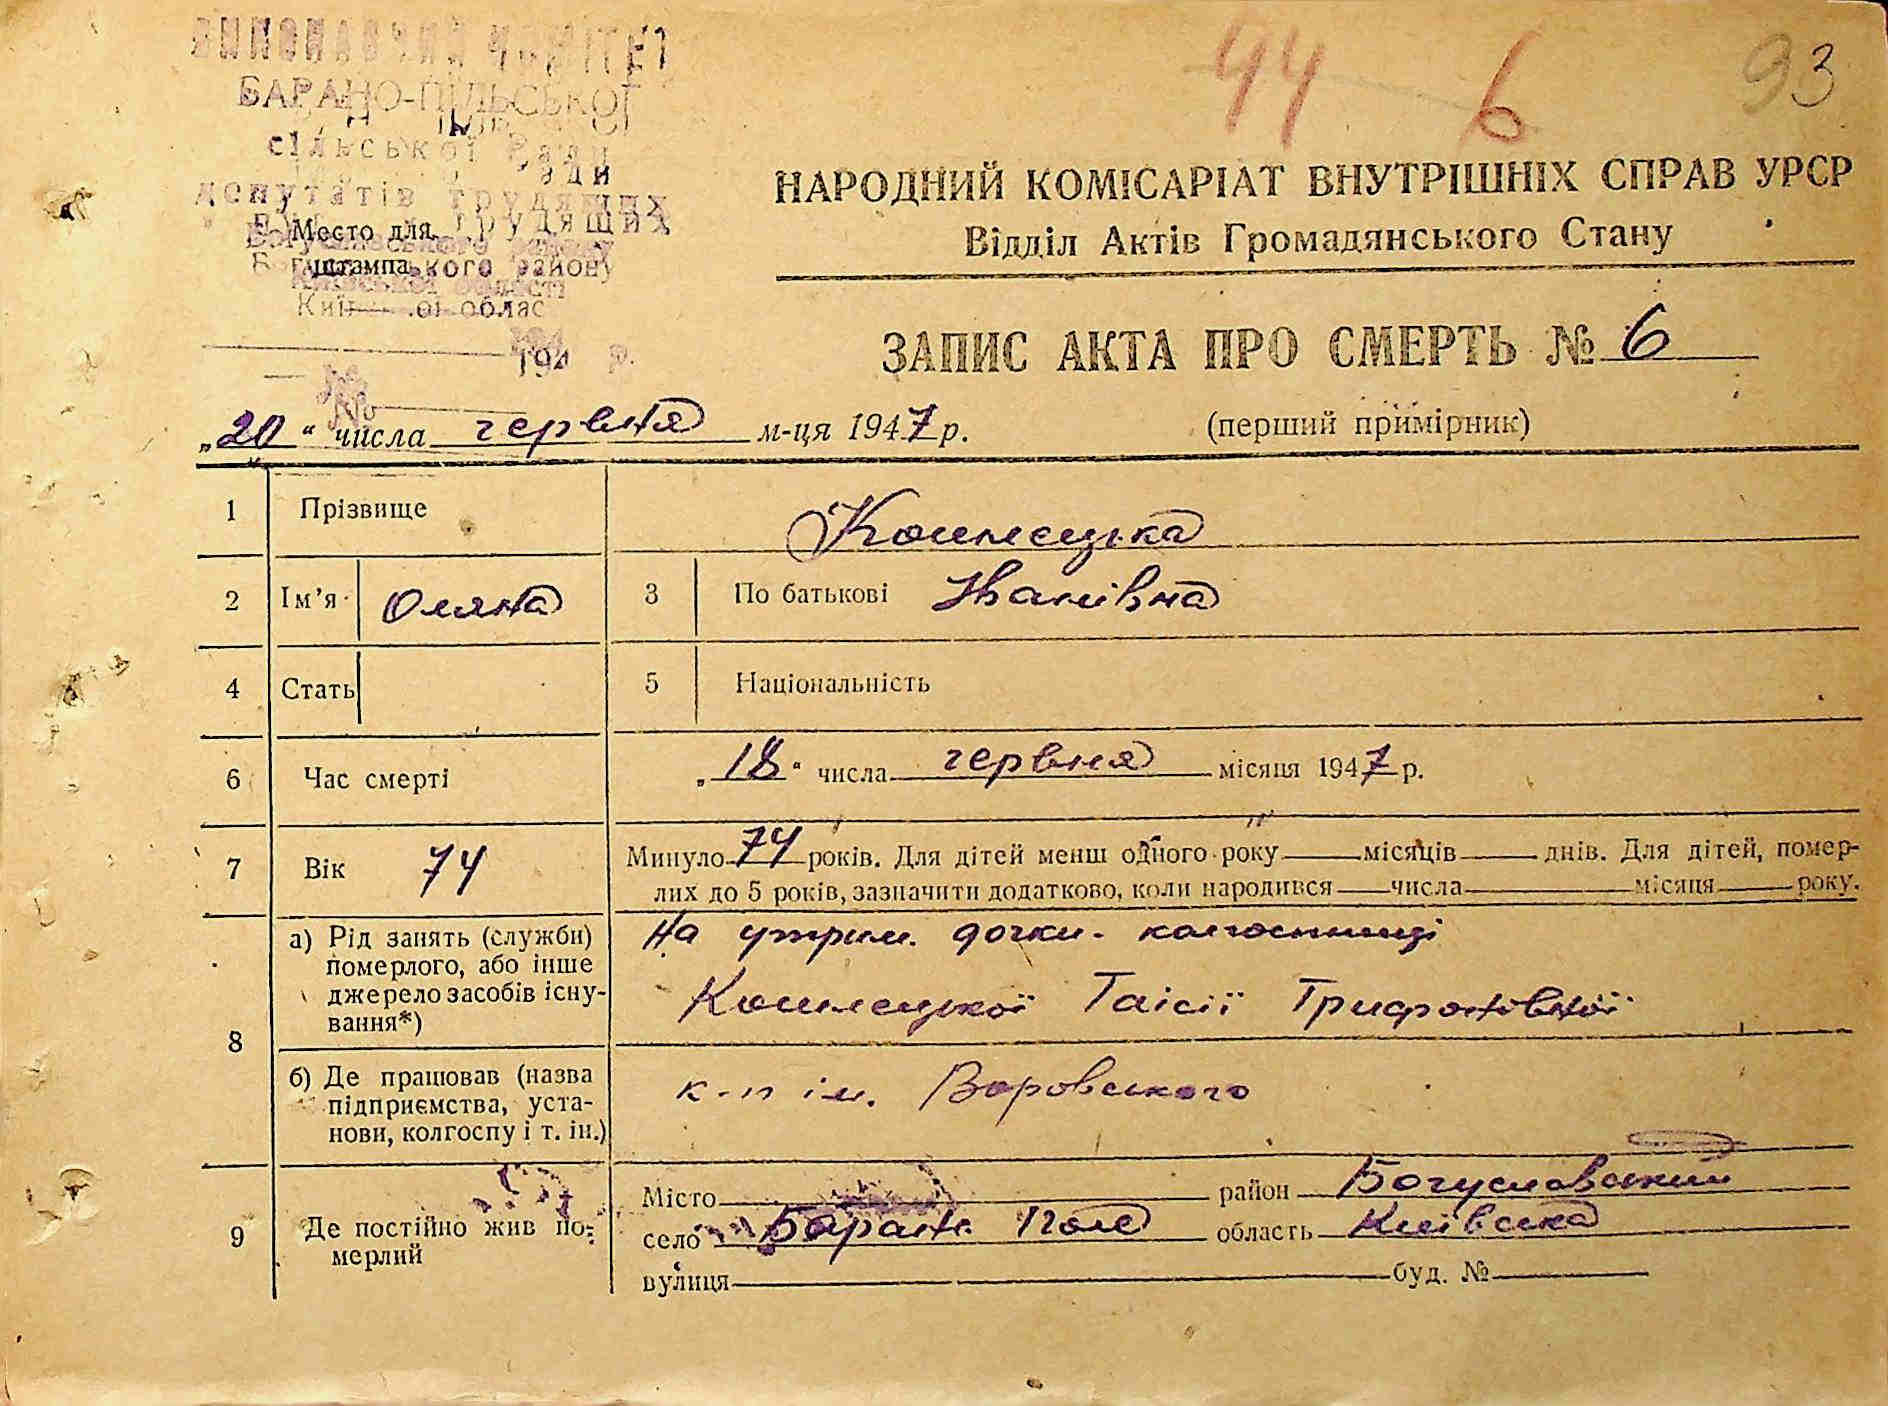 ВИКОНАВЧИЙ КОМІТЕТ
БАРАНО-ПІЛЬСЬКОЇ
сільської Ради
депутатів трудящих
Богуславського району
Київської області
Место для
штампа
194 р.
№
44 6 93
НАРОДНИЙ КОМІСАРІАТ ВНУТРІШНІХ СПРАВ УРСР
Відділ Актів Громадянського Стану
ЗАПИС АКТА ПРО СМЕРТЬ № 6
„20“ числа червня м-ця 1947 р. (перший примірник)
1 Прізвище Кошмецька
2 Ім’я Оляна 3 По батькові Іванівна
4 Стать 5 Національність
6 Час смерті „18“ числа червня місяця 1947 р.
7 Вік 74 Минуло 74 років. Для дітей менш одного року місяців днів. Для дітей, помер-
лих до 5 років, зазначити додатково, коли народився числа місяця року.
8 а) Рід занять (служби)
померлого, або інше
джерело засобів існу-
вання*)
На утрим. дочки- колгоспниці
Кошмецької Таісії Трифонівної
б) Де працював (назва
підприємства, уста-
нови, колгоспу і т. ін.)
к-п ім. Воровського
9 Де постійно жив по-
мерлий
Місто район Богуславський
село Баране Поле область Київська
вулиця буд. №